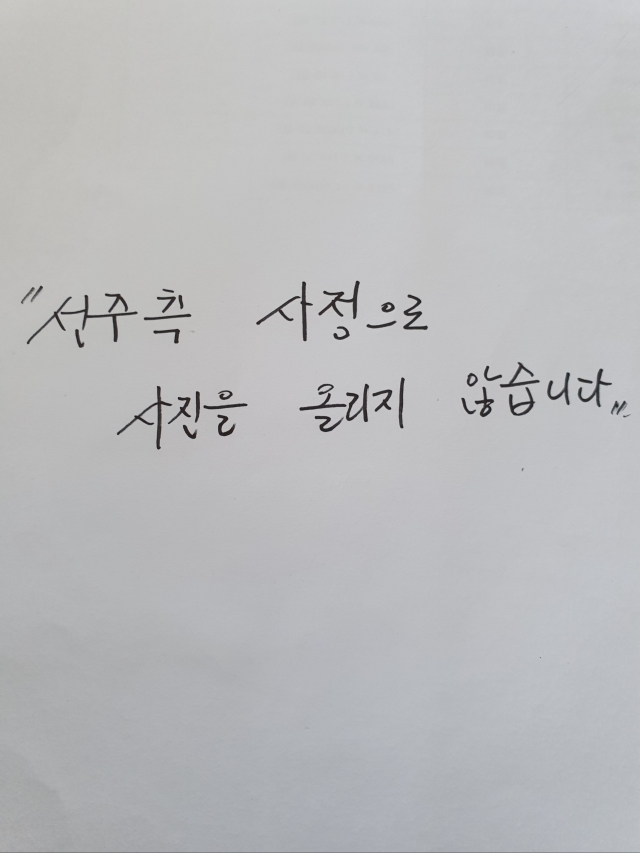 "선주측 사정으로
사진을 올리지 않습니다"